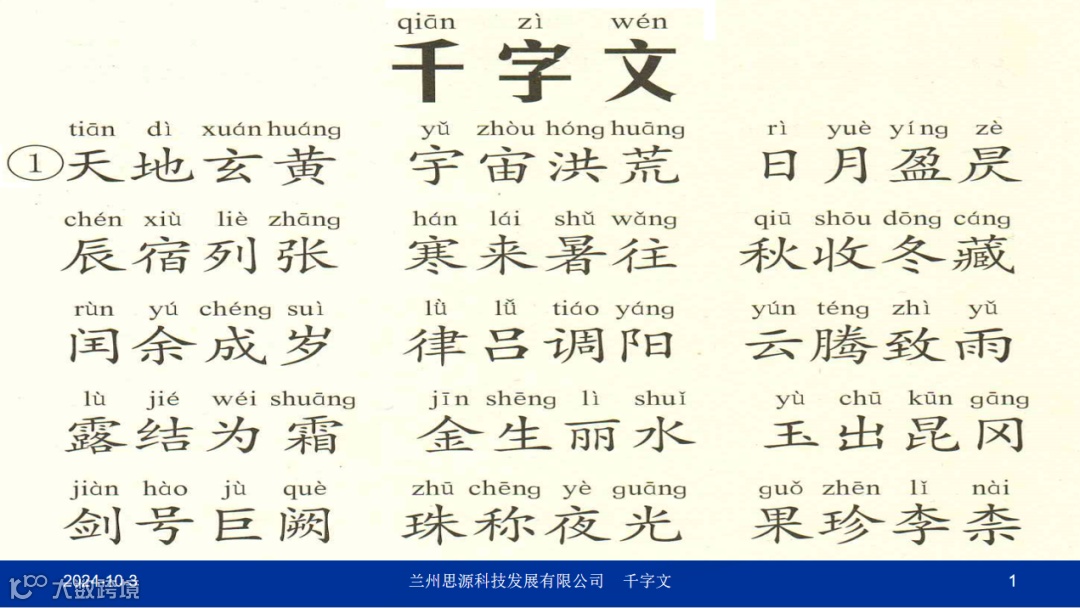 qiān zì wén
千字文
tiān dì xuán huáng yǔ zhòu hóng huāng rì yuè yíng zè
①天地玄黄 宇宙洪荒 日月盈昃
chén xiù liè zhāng hán lái shǔ wǎng qiū shōu dōng cáng
辰宿列张 寒来暑往 秋收冬藏
rùn yú chéng suì lǜ lǚ tiáo yáng yún téng zhì yǔ
闰余成岁 律吕调阳 云腾致雨
lù jié wéi shuāng jīn shēng lì shuǐ yù chū kūn gāng
露结为霜 金生丽水 玉出昆冈
jiàn hào jù què zhū chēng yè guāng guǒ zhēn lǐ nài
剑号巨阙 珠称夜光 果珍李柰
2024-10-3 兰州思源科技发展有限公司 千字文 1
大数跨境